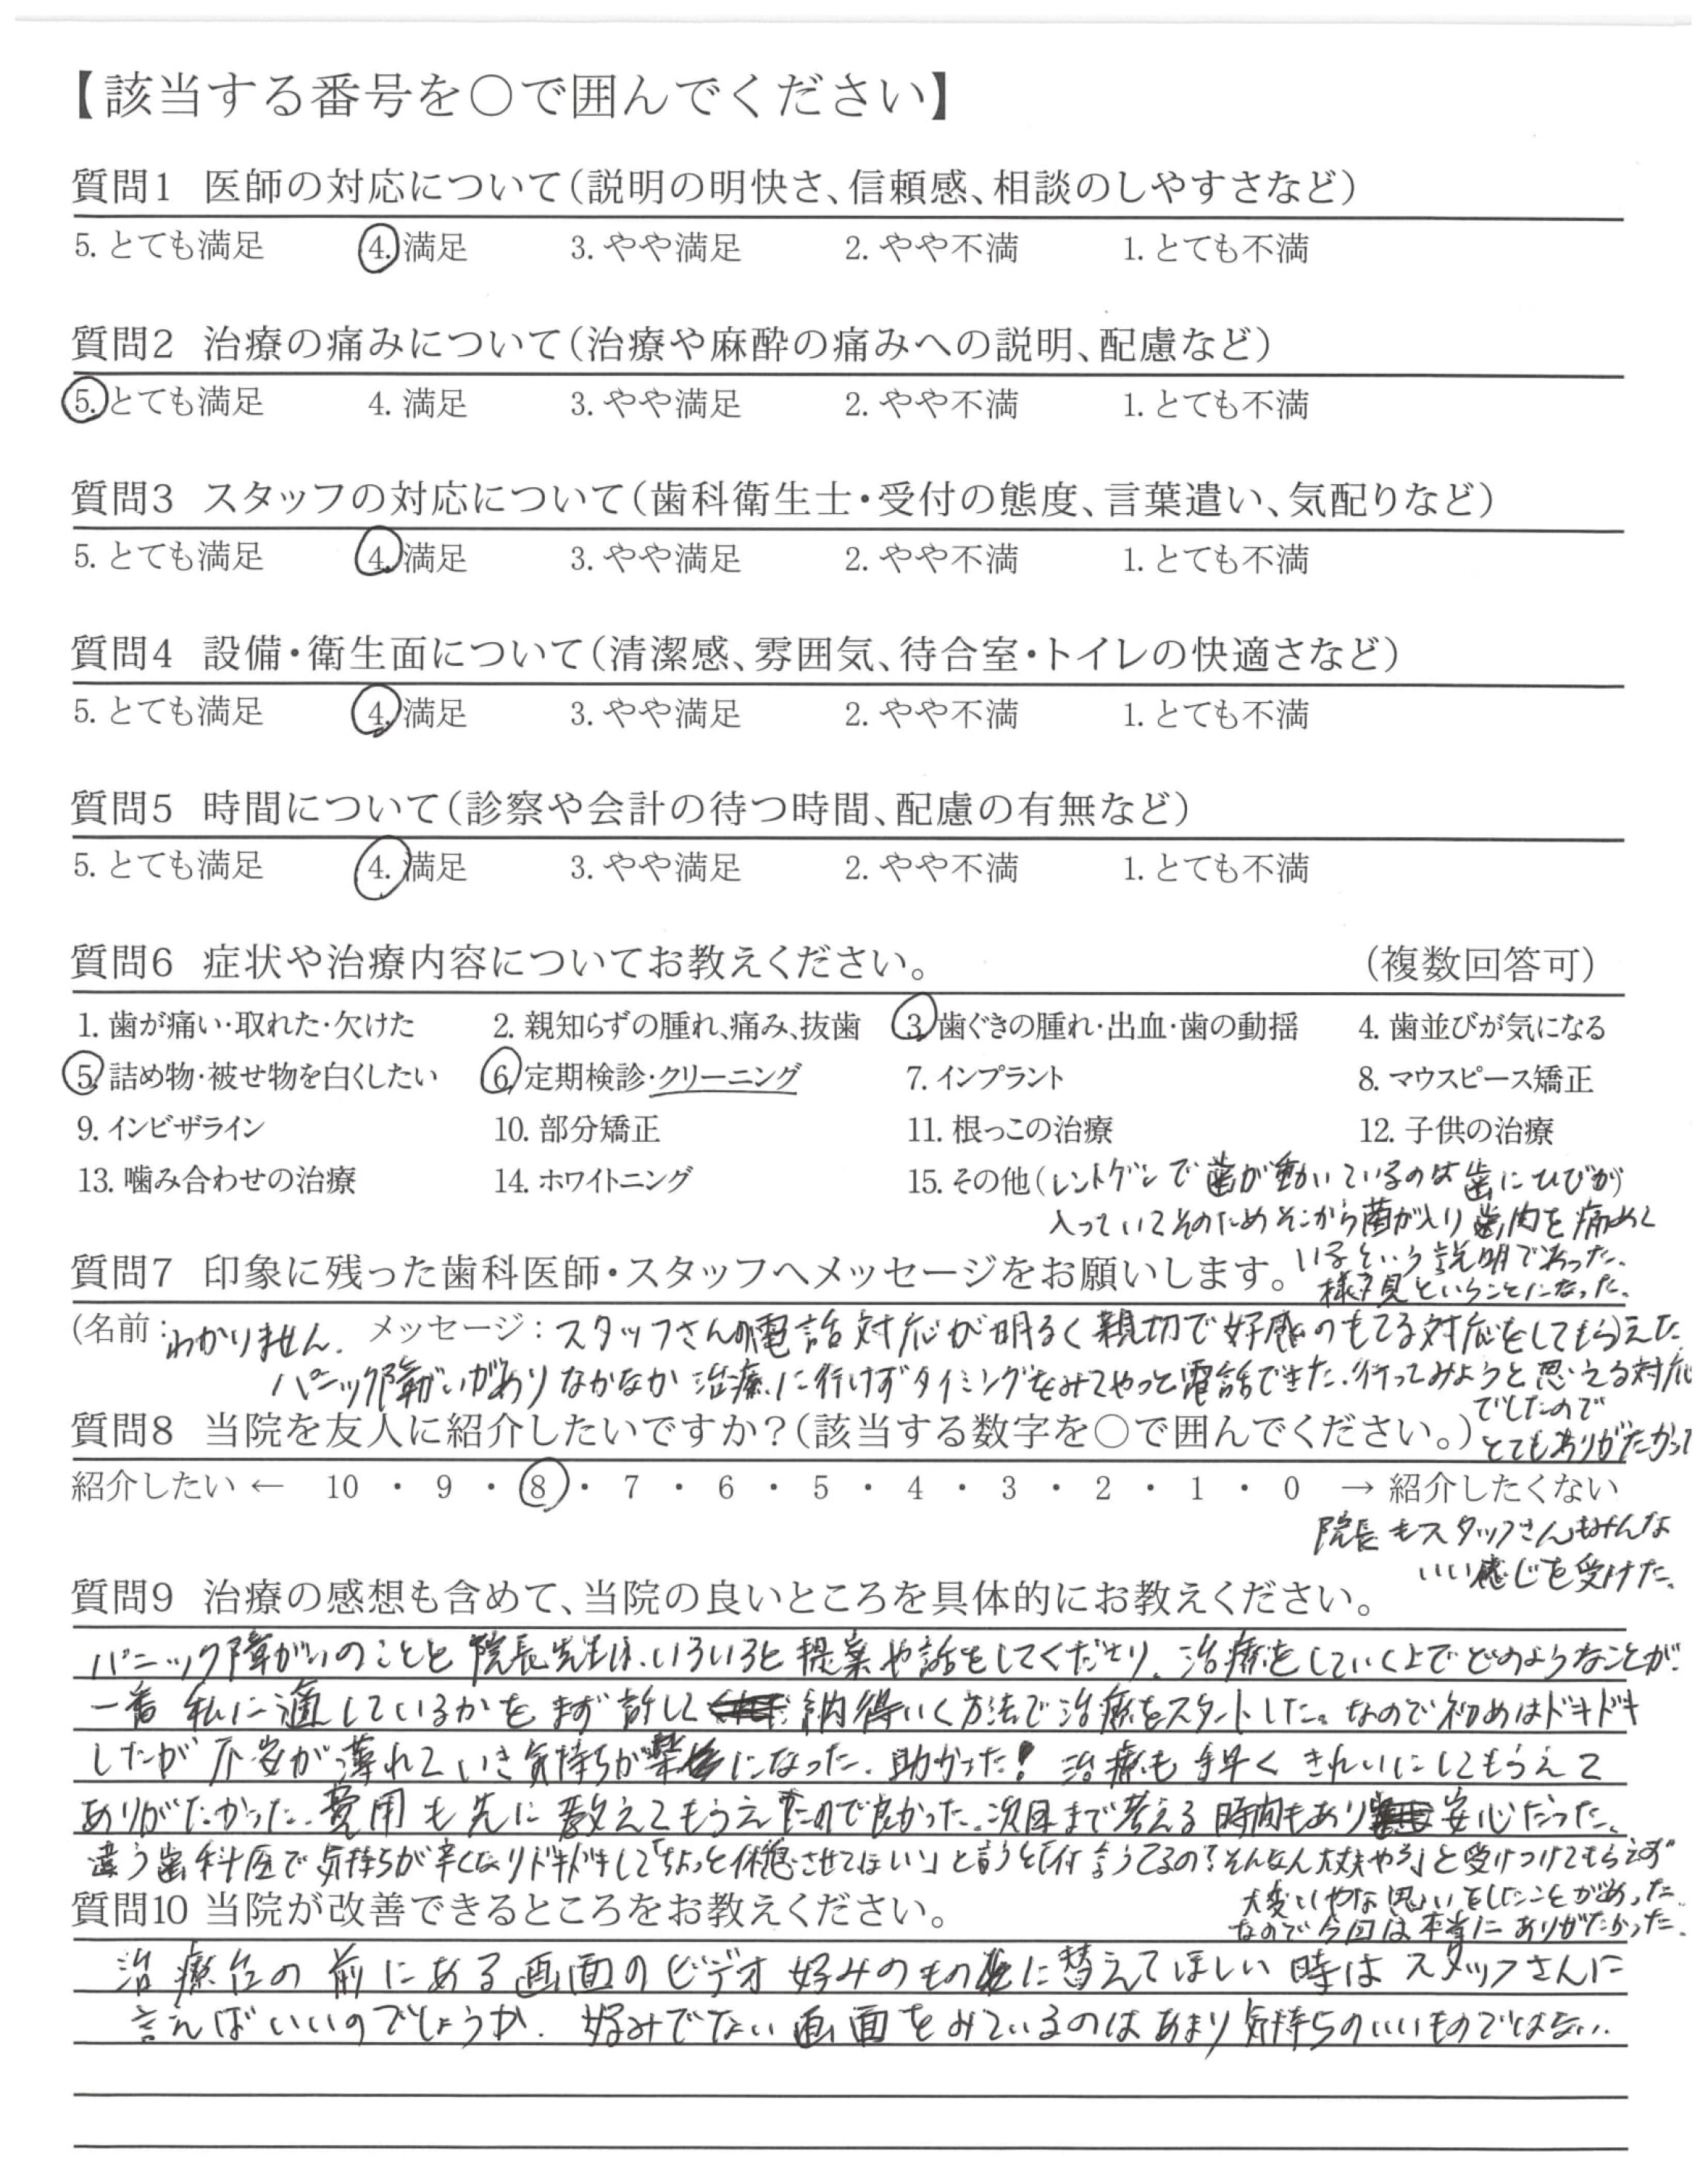 【該当する番号を〇で囲んでください】
質問1 医師の対応について(説明の明快さ、信頼感、相談のしやすさなど)
5. とても満足 4. 満足 3. やや満足 2. やや不満 1. とても不満
質問2 治療の痛みについて(治療や麻酔の痛みへの説明、配慮など)
5. とても満足 4. 満足 3. やや満足 2. やや不満 1. とても不満
質問3 スタッフの対応について(歯科衛生士・受付の態度、言葉遣い、気配りなど)
5. とても満足 4. 満足 3. やや満足 2. やや不満 1. とても不満
質問4 設備・衛生面について(清潔感、雰囲気、待合室・トイレの快適さなど)
5. とても満足 4. 満足 3. やや満足 2. やや不満 1. とても不満
質問5 時間について(診察や会計の待つ時間、配慮の有無など)
5. とても満足 4. 満足 3. やや満足 2. やや不満 1. とても不満
質問6 症状や治療内容についてお教えください。 (複数回答可)
1. 歯が痛い・取れた・欠けた 2. 親知らずの腫れ、痛み、抜歯 3. 歯ぐきの腫れ・出血・歯の動揺 4. 歯並びが気になる
5. 詰め物・被せ物を白くしたい 6. 定期検診・クリーニング 7. インプラント 8. マウスピース矯正
9. インビザライン 10. 部分矯正 11. 根っこの治療 12. 子供の治療
13. 噛み合わせの治療 14. ホワイトニング 15. その他(レントゲンで歯が動いているのは歯にひびが)
入っていてそのためそこから菌が入り歯肉を痛めて
いるという説明であった。
様子見ということになった。
質問7 印象に残った歯科医師・スタッフへメッセージをお願いします。
(名前:わかりません. メッセージ:スタッフさんの電話対応が明るく親切で好感のもてる対応をしてもらえた
パニック障がいがありなかなか治療に行けずタイミングをみてやっと電話できた.行ってみようと思える対応
でしたので
とてもありがたかった
質問8 当院を友人に紹介したいですか?(該当する数字を〇で囲んでください。)
紹介したい ← 10 ・ 9 ・ 8 ・ 7 ・ 6 ・ 5 ・ 4 ・ 3 ・ 2 ・ 1 ・ 0 → 紹介したくない
院長もスタッフさんもみんな
いい感じを受けた。
質問9 治療の感想も含めて、当院の良いところを具体的にお教えください。
パニック障がいのことと院長先生は、いろいろと提案や話をしてくださり、治療をしていく上でどのようなことが
一番私に適しているかをまず話して納得いく方法で治療をスタートした。なので初めはドキドキ
したが不安が薄れていき気持ちが楽になった. 助かった! 治療も手早くきれいにしてもらえて
ありがたかった. 費用も先に教えてもらえたので良かった。次回まで考える時間もあり安心だった。
違う歯科医で気持ちが辛くなりドキドキして「ちょっと休憩させてほしい」と言うと「何言うてるの?そんなん大丈夫やろ」と受けつけてもらえず
大変いやな思いをしたことがあった.
なので今回は本当にありがたかった.
質問10 当院が改善できるところをお教えください。
治療台の前にある画面のビデオ好みのものに替えてほしい時はスタッフさんに
言えばいいのでしょうか. 好みでない画面をみているのはあまり気持ちのいいものではない.